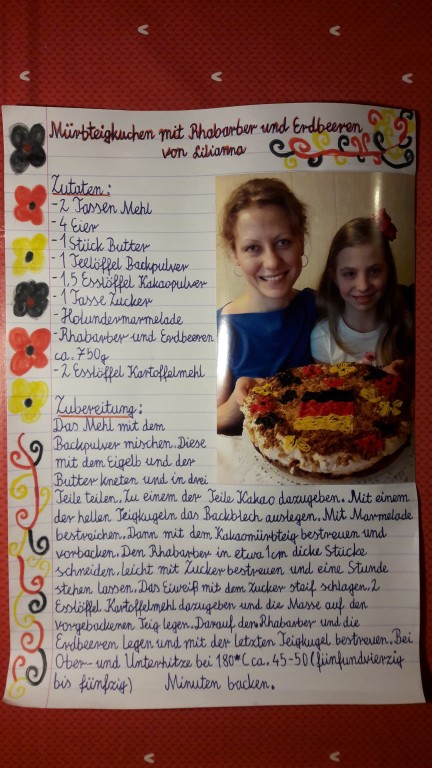 Mürbteigkuchen mit Rhabarber und Erdbeeren
von Lilianna
Zutaten:
-2 Tassen Mehl
-4 Eier
-1 Stück Butter
-1 Teelöffel Backpulver
-1,5 Esslöffel Kakaopulver
-1 Tasse Zucker
-Holundermarmelade
-Rhabarber und Erdbeeren
ca. 750g
-2 Esslöffel Kartoffelmehl
Zubereitung:
Das Mehl mit dem
Backpulver mischen. Diese
mit dem Eigelb und der
Butter kneten und in drei
Teile teilen. Zu einem der Teile Kakao dazugeben. Mit einem
der hellen Teigkugeln das Backblech auslegen. Mit Marmelade
bestreichen. Dann mit dem Kakaomürbteig bestreuen und
vorbacken. Den Rhabarber in etwa 1cm dicke Stücke
schneiden, leicht mit Zucker bestreuen und eine Stunde
stehen lassen. Das Eiweiß mit dem Zucker steif schlagen. 2
Esslöffel Kartoffelmehl dazugeben und die Masse auf den
vorgebackenen Teig legen. Darauf den Rhabarber und die
Erdbeeren legen und mit der letzten Teigkugel bestreuen. Bei
Ober- und Unterhitze bei 180°C ca. 45-50 (fünfundvierzig
bis fünfzig) Minuten backen.